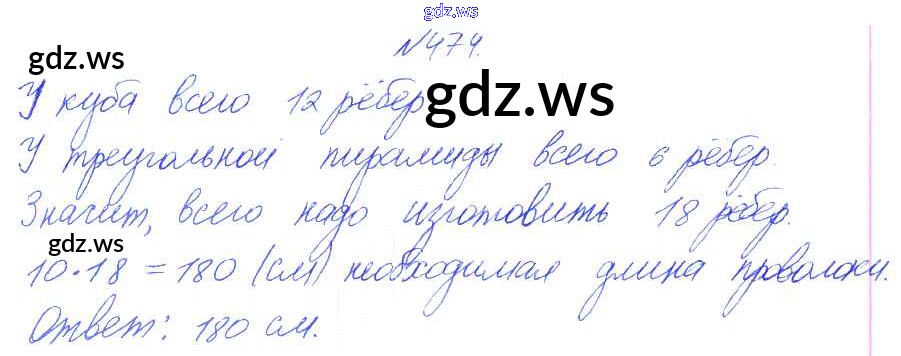 gdz.ws
№474.
gdz.ws
У куба всего 12 рёбер
gdz.ws
У треугольной пирамиды всего 6 рёбер.
Значит, всего надо изготовить 18 рёбер.
gdz.ws
10·18 = 180 (см) необходимая длина проволоки.
Ответ: 180 см.